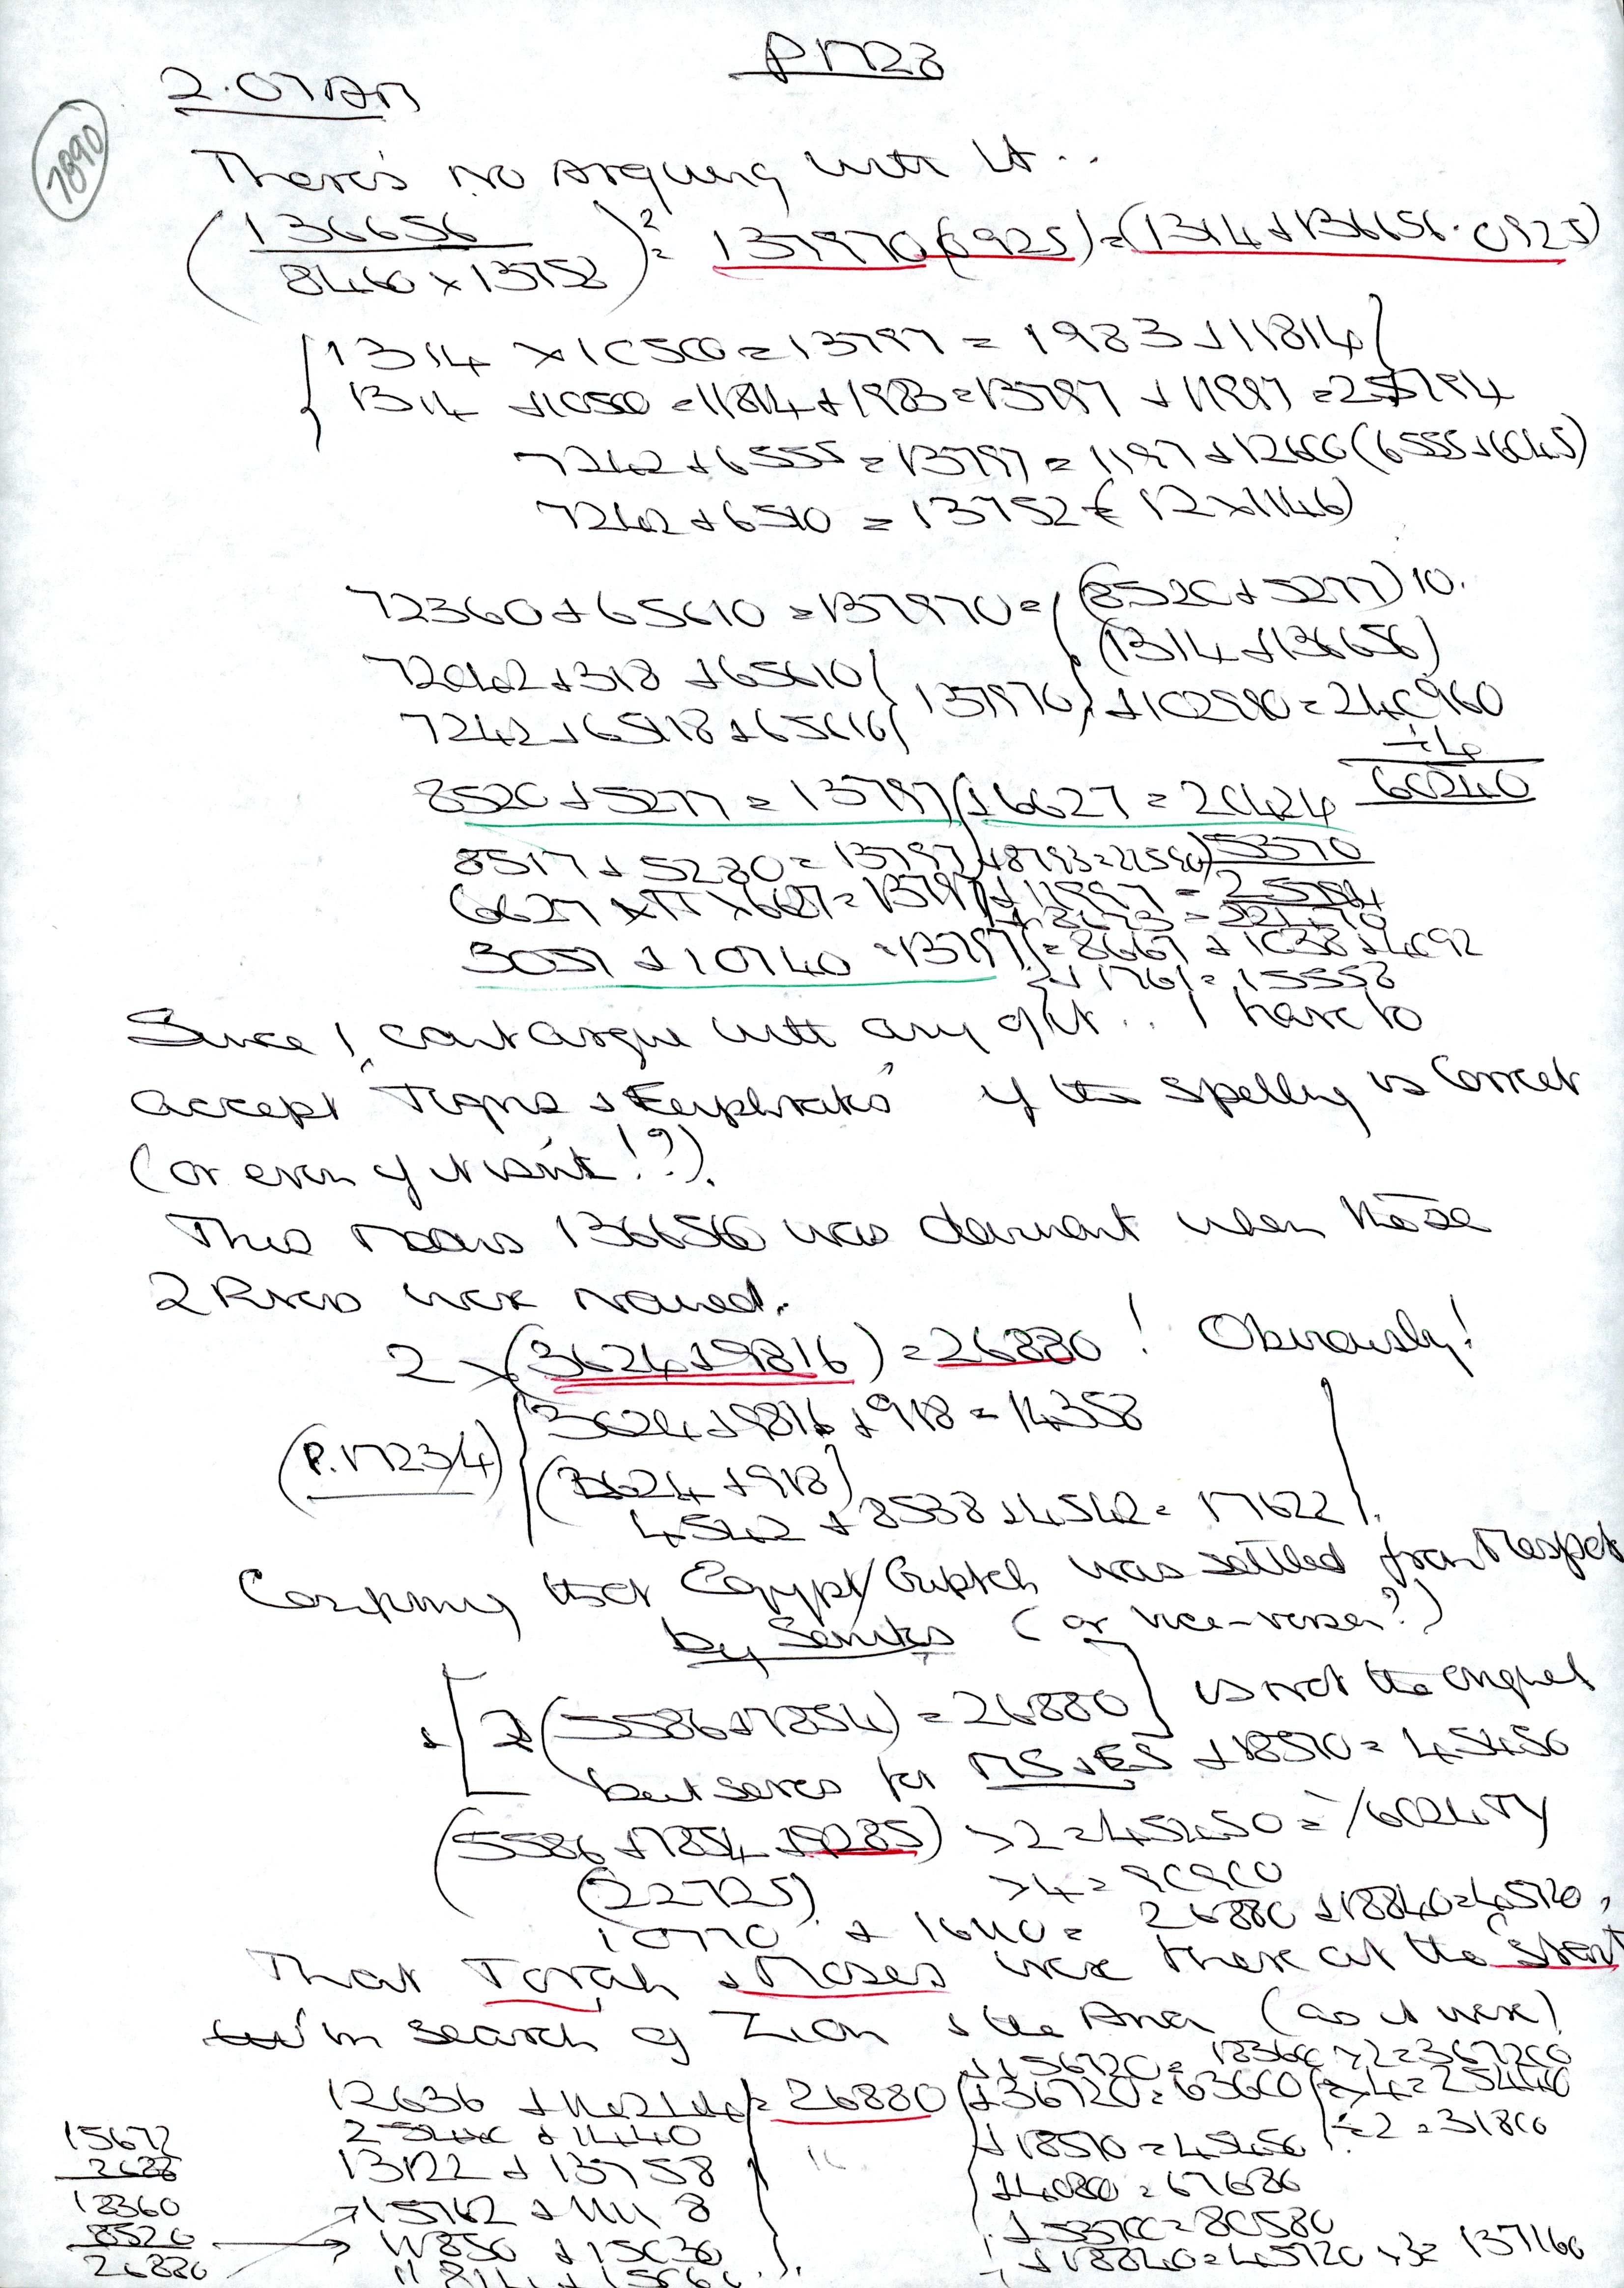 P1723
2.07AM
7890
There's no arguing with it..
(136656 / 8460 x 13752)² = 137970(0925) = (1314 + 136656.0925)
{1314 x 10500 = 13797 = 1983 + 11814}
1314 + 10500 = 11814 + 1983 = 13797 + 11997 = 25794
7242 + 6555 = 13797 = 1197 + 12600 (6555 + 6045)
7242 + 6510 = 13752 (12 x 1146)
72360 + 65610 = 137970 = (8520 + 5277) 10.
(1314 + 136656)
72042 + 318 + 65610
7242 + 65118 + 65610 } 137970 } + 102990 = 240960
÷ 4
60240
8520 + 5277 = 13797 (+ 6627 = 20424
8517 + 5280 = 13797 + 8793 = 22590) 5370
6627 x π x 6627 = 13797 + 11997 = 25794
3057 + 10740 = 13797 = 8667 + 1038 + 4092
+ 1761 = 15558
Since I can't argue with any of it.. I have to
accept "Tigris & Euphrates" if the spelling is correct
(or even if it isn't!?).
This means 136656 was dormant when these
2 Rivers were named.
2 x (3624 + 9816) = 26880! Obviously!
(P.1723/4) {3624 + 9816 + 918 = 14358
(3624 + 918)
4542 + 8538 + 4542 = 17622}.
Confirming that Egypt/Guptch was settled from
by Semites (or vice-versa?)
+ [2(5586 + 7854) = 26880] is not the original
but serves for MS + ES + 18570 = 45450
(5586 + 7854 + 9285) x 2 = 45450 =
(22725) x 4 = 90900
10770 + 16110 = 26880 + 18840 = 45720,
That Torah & Moses were there at the "start"
in search of Zion & the (as it were)
+ 156720 = 183600 x 2 = 367200
12636 + 14244 = 26880 (+ 36720 = 63600 (x 4 = 254400
25440 + 1440 ÷ 2 = 31800
13122 + 13758 + 18570 = 45450
15762 + 11118
11850 + 15030 + 53700 = 80580
+ 18840 = 45720 x 3 = 137160
15672
2688
18360
8520
26880